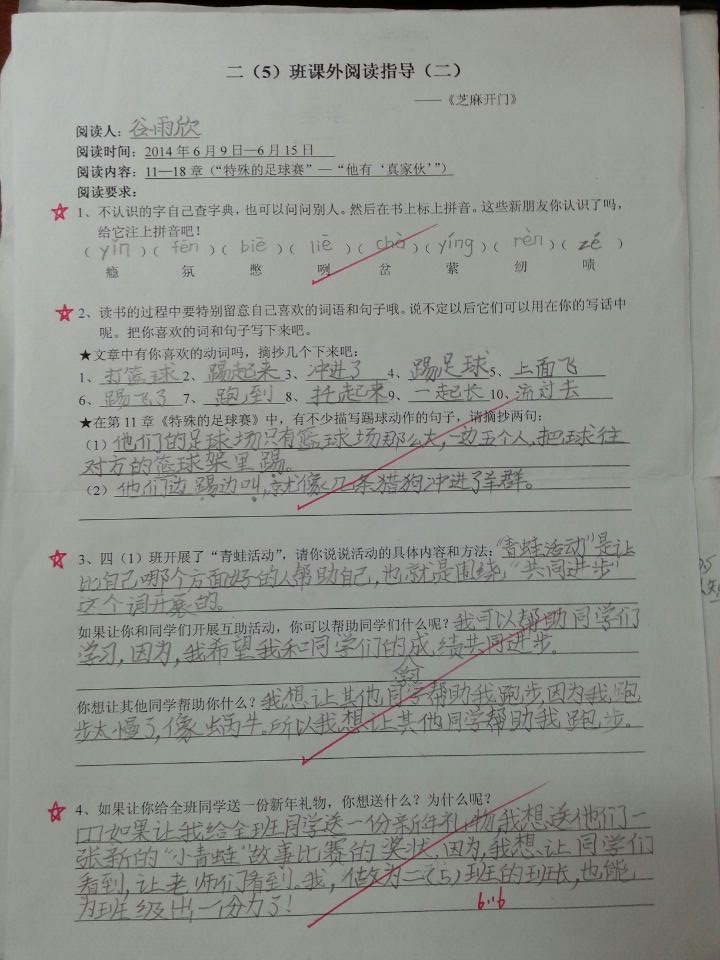 二（5）班课外阅读指导（二）
——《芝麻开门》
阅读人：谷雨欣
阅读时间：2014年6月9日—6月15日
阅读内容：11—18章（“特殊的足球赛”—“他有‘真家伙’”）
阅读要求：
1、不认识的字自己查字典，也可以问问别人。然后在书上标上拼音。这些新朋友你认识了吗，
给它注上拼音吧！
（yǐn）（fēn）（biē）（liē）（chà）（yíng）（rèn）（zé）
瘾 氛 憋 咧 岔 萦 纫 啧
2、读书的过程中要特别留意自己喜欢的词语和句子哦。说不定以后它们可以用在你的写话中
呢。把你喜欢的词和句子写下来吧。
★文章中有你喜欢的动词吗，摘抄几个下来吧：
1、打篮球2、踢起来3、冲进了4、踢足球5、上面飞
6、踢飞了7、跑到8、托起来9、一起长10、流过去
★在第11章《特殊的足球赛》中，有不少描写踢球动作的句子，请摘抄两句：
（1）他们的足球场只有篮球场那么大，一边五个人，把球往
对方的篮球架里踢。
（2）他们边踢边叫，就像几条猎狗冲进了羊群。
3、四（1）班开展了“青蛙活动”，请你说说活动的具体内容和方法：“青蛙活动”是让
比自己哪个方面好的人帮助自己，也就是围绕“共同进步”
这个词开展的。
如果让你和同学们开展互助活动，你可以帮助同学们什么呢？我可以帮助同学们
学习，因为，我希望我和同学们的成绩共同进步。
学习
你想让其他同学帮助你什么？我想让其他同学帮助我跑步，因为我跑
步太慢了，像蜗牛。所以我想让其他同学帮助我跑步。
4、如果让你给全班同学送一份新年礼物，你想送什么？为什么呢？
如果让我给全班同学送一份新年礼物我想送他们一
张新的“小青蛙”故事比赛的奖状，因为，我想让同学们
看到，让老师们看到。我，做为二（5）班的班长，也能
为班级出一份力了！
6.16